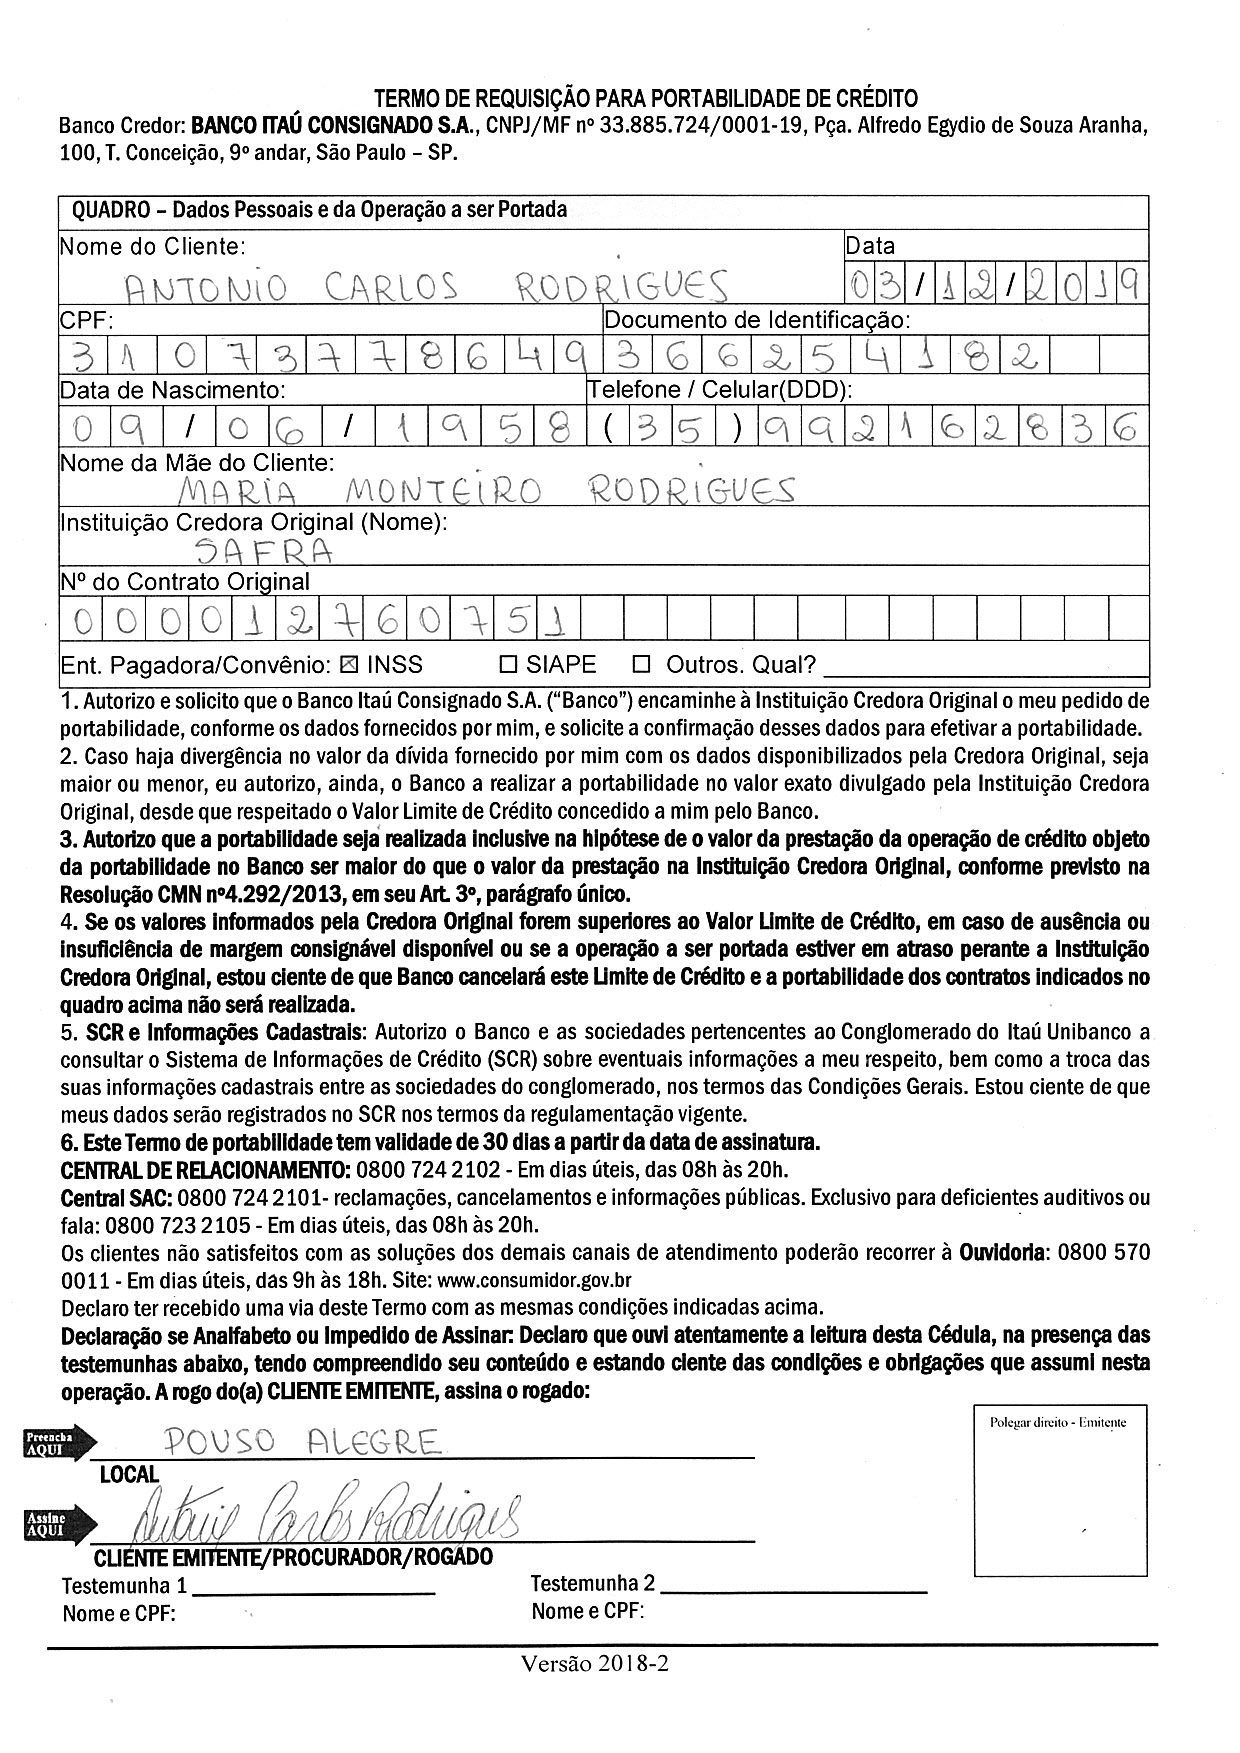 TERMO DE REQUISIÇÃO PARA PORTABILIDADE DE CRÉDITO
Banco Credor: BANCO ITAÚ CONSIGNADO S.A., CNPJ/MF nº 33.885.724/0001-19, Pça. Alfredo Egydio de Souza Aranha,
100, T. Conceição, 9º andar, São Paulo – SP.
QUADRO – Dados Pessoais e da Operação a ser Portada
Nome do Cliente: Data
ANTONIO CARLOS RODRIGUES 03/12/2019
CPF: Documento de Identificação:
31073778649 3662541 82
Data de Nascimento: Telefone / Celular(DDD):
09/06/1958 (35)992162836
Nome da Mãe do Cliente:
MARIA MONTEIRO RODRIGUES
Instituição Credora Original (Nome):
SAFRA
Nº do Contrato Original
000012760751
Ent. Pagadora/Convênio: ☒ INSS ☐ SIAPE ☐ Outros. Qual?
1. Autorizo e solicito que o Banco Itaú Consignado S.A. (“Banco”) encaminhe à Instituição Credora Original o meu pedido de
portabilidade, conforme os dados fornecidos por mim, e solicite a confirmação desses dados para efetivar a portabilidade.
2. Caso haja divergência no valor da dívida fornecido por mim com os dados disponibilizados pela Credora Original, seja
maior ou menor, eu autorizo, ainda, o Banco a realizar a portabilidade no valor exato divulgado pela Instituição Credora
Original, desde que respeitado o Valor Limite de Crédito concedido a mim pelo Banco.
3. Autorizo que a portabilidade seja realizada inclusive na hipótese de o valor da prestação da operação de crédito objeto
da portabilidade no Banco ser maior do que o valor da prestação na Instituição Credora Original, conforme previsto na
Resolução CMN nº4.292/2013, em seu Art. 3º, parágrafo único.
4. Se os valores informados pela Credora Original forem superiores ao Valor Limite de Crédito, em caso de ausência ou
insuficiência de margem consignável disponível ou se a operação a ser portada estiver em atraso perante a Instituição
Credora Original, estou ciente de que Banco cancelará este Limite de Crédito e a portabilidade dos contratos indicados no
quadro acima não será realizada.
5. SCR e Informações Cadastrais: Autorizo o Banco e as sociedades pertencentes ao Conglomerado do Itaú Unibanco a
consultar o Sistema de Informações de Crédito (SCR) sobre eventuais informações a meu respeito, bem como a troca das
suas informações cadastrais entre as sociedades do conglomerado, nos termos das Condições Gerais. Estou ciente de que
meus dados serão registrados no SCR nos termos da regulamentação vigente.
6. Este Termo de portabilidade tem validade de 30 dias a partir da data de assinatura.
CENTRAL DE RELACIONAMENTO: 0800 724 2102 - Em dias úteis, das 08h às 20h.
Central SAC: 0800 724 2101- reclamações, cancelamentos e informações públicas. Exclusivo para deficientes auditivos ou
fala: 0800 723 2105 - Em dias úteis, das 08h às 20h.
Os clientes não satisfeitos com as soluções dos demais canais de atendimento poderão recorrer à Ouvidoria: 0800 570
0011 - Em dias úteis, das 9h às 18h. Site: www.consumidor.gov.br
Declaro ter recebido uma via deste Termo com as mesmas condições indicadas acima.
Declaração se Analfabeto ou Impedido de Assinar: Declaro que ouvi atentamente a leitura desta Cédula, na presença das
testemunhas abaixo, tendo compreendido seu conteúdo e estando ciente das condições e obrigações que assumi nesta
operação. A rogo do(a) CLIENTE EMITENTE, assina o rogado:
Polegar direito - Emitente
Preencha
AQUI
POUSO ALEGRE
LOCAL
Assine
AQUI
Antonio Carlos Rodrigues
CLIENTE EMITENTE/PROCURADOR/ROGADO
Testemunha 1 Testemunha 2
Nome e CPF: Nome e CPF:
Versão 2018-2